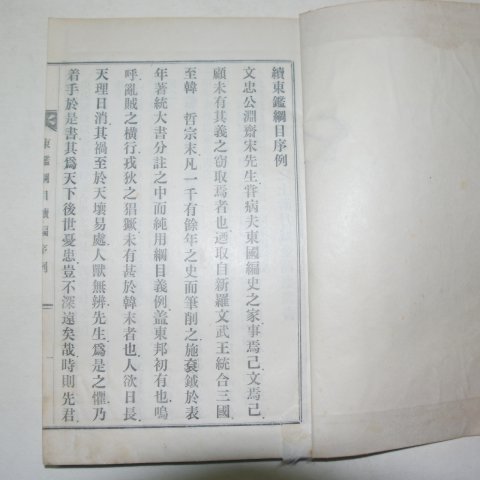 續東鑑綱目序例
文忠公淵齋宋先生甞病夫東國編史之家事焉己文焉己
顧未有其義之竊取焉者也迺取自新羅文武王統合三國
至韓 哲宗末凡一千有餘年之史而筆削之施袞鉞於表
年著統大書分註之中而純用綱目義例蓋東邦初有也嗚
呼亂賊之橫行戎狄之猖獗未有甚於韓末者也人欲日長
天理日消其禍至於天壤易處人獸無辨先生爲是之懼乃
着手於是書其爲天下後世憂患豈不深遠矣哉時則先君
東鑑綱目續編序例